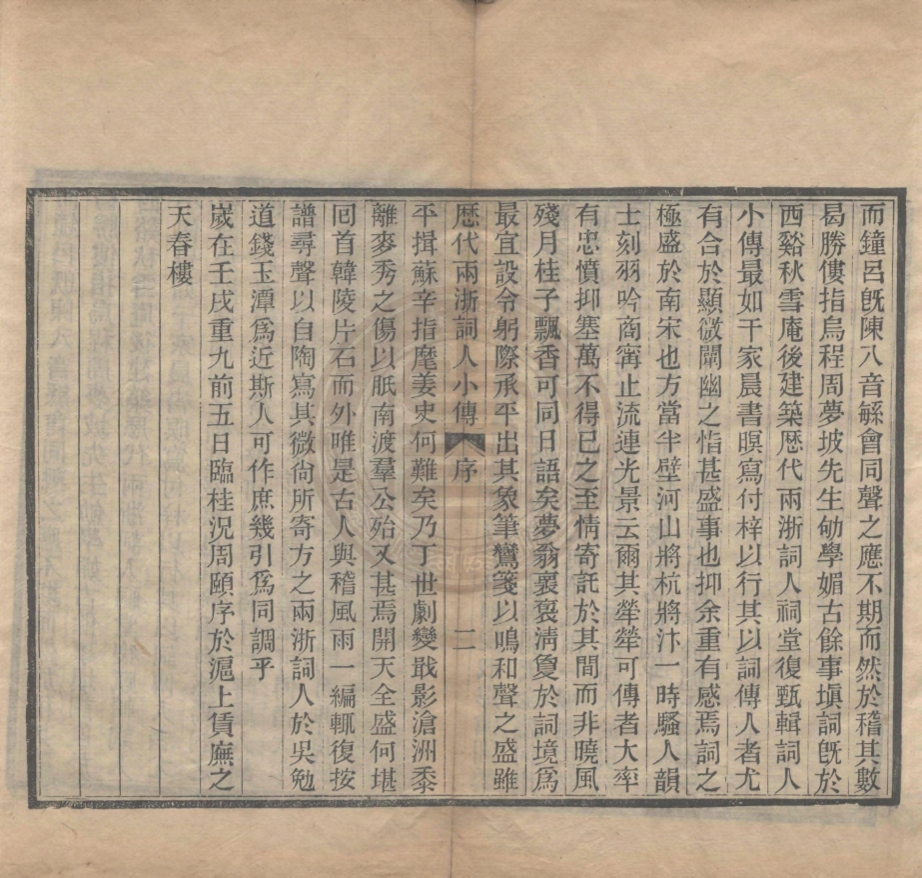 而鐘呂旣陳八音繇會同聲之應不期而然於稽其數
曷勝僂指烏程周夢坡先生劬學媚古餘事塡詞旣於
西谿秋雪庵後建築歷代兩浙詞人祠堂復甄輯詞人
小傳最如干家晨書暝寫付梓以行其以詞傳人者尤
有合於顯微闡幽之恉甚盛事也抑余重有感焉詞之
極盛於南宋也方當半壁河山將杭將汴一時騷人韻
士刻羽吟商寧止流連光景云爾其犖犖可傳者大率
有忠憤抑塞萬不得已之至情寄託於其間而非曉風
殘月桂子飄香可同日語矣夢翁襃襃淸敻於詞境爲
最宜設令躬際承平出其象筆鸞箋以鳴和聲之盛雖
歷代兩浙詞人小傳 序 二
平揖蘇辛指麾姜史何難矣乃丁世劇變戢影滄洲黍
離麥秀之傷以眡南渡羣公殆又甚焉開天全盛何堪
回首韓陵片石而外唯是古人與稽風雨一編輒復按
譜尋聲以自陶寫其微尙所寄方之兩浙詞人於吳勉
道錢玉潭爲近斯人可作庶幾引爲同調乎
歲在壬戌重九前五日臨桂況周頤序於滬上賃廡之
天春樓